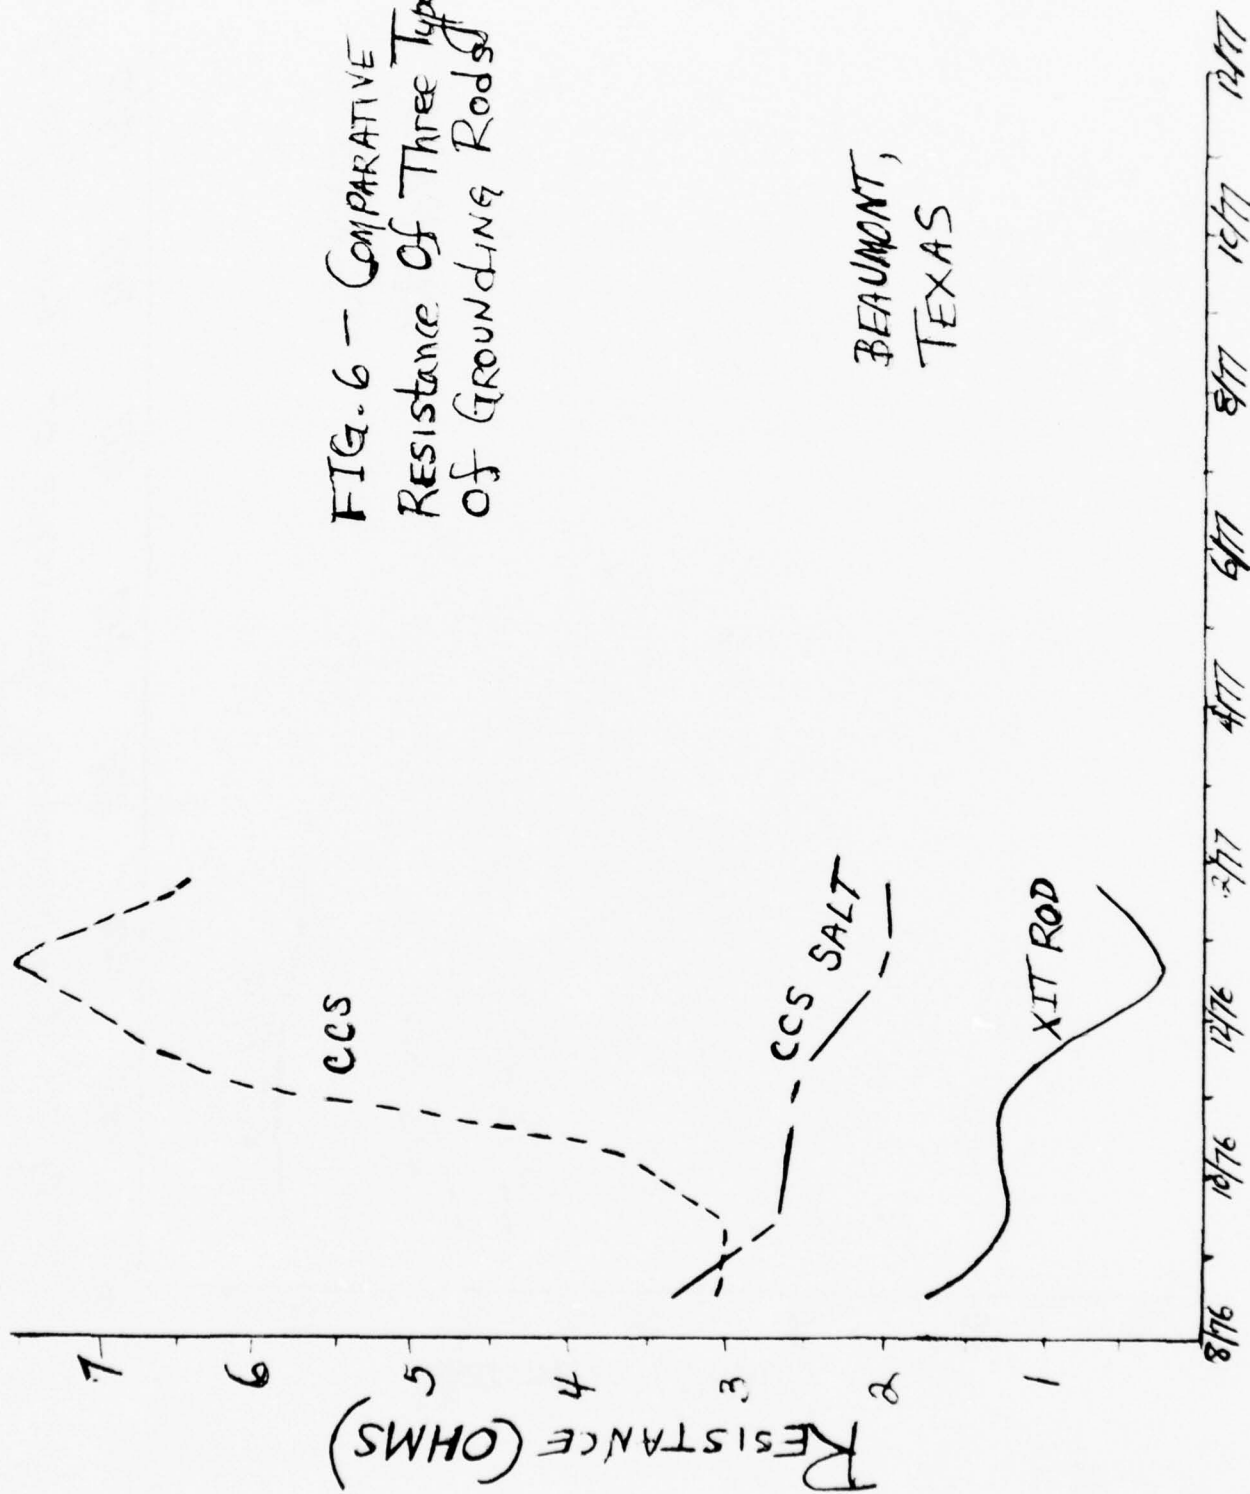 FIG. 6 - COMPARATIVE
RESIStance Of Three
Of GROUNdING Rods
BEAUMONT,
TEXAS
CCS
CCS SALT
XIT ROD
RESISTANCE (OHMS)
7
6
5
4
3
2
1
8/76
10/76
12/76
2/77
4/77
6/77
8/77
10/77
12/77